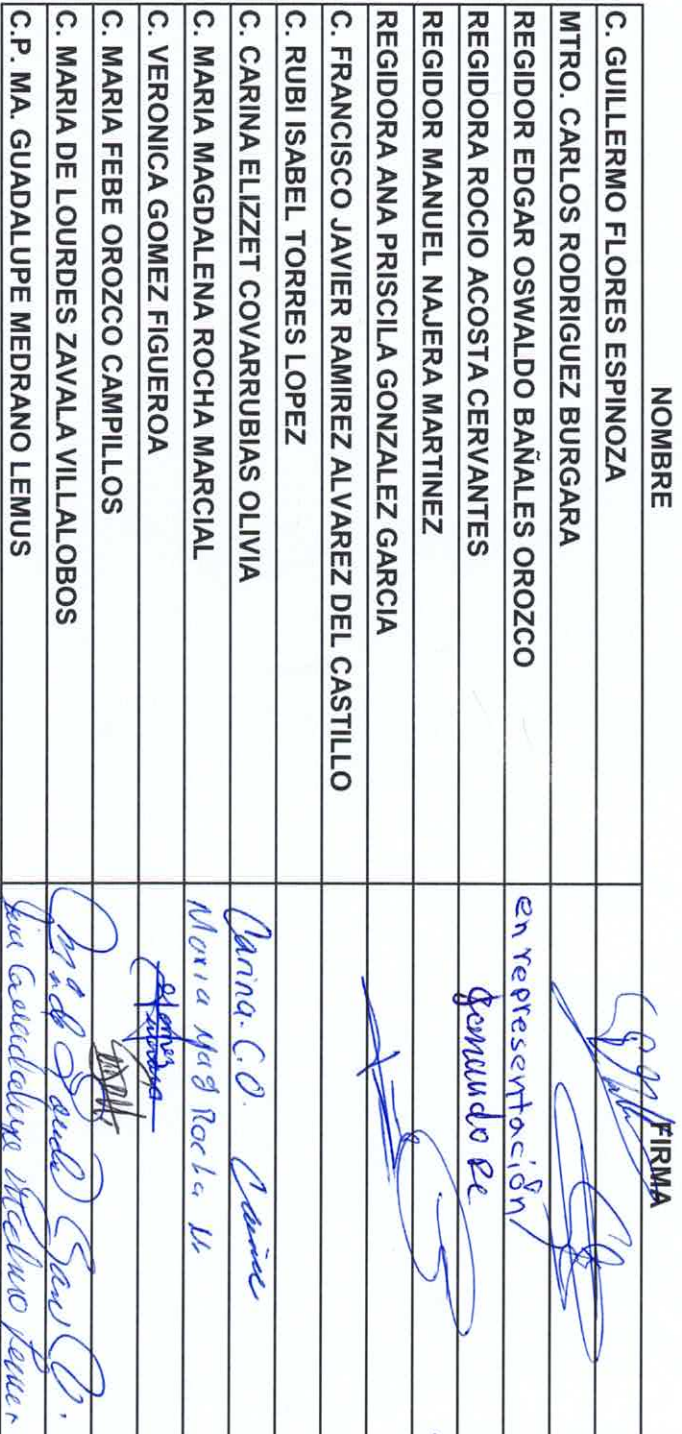 NOMBRE FIRMA
C. GUILLERMO FLORES ESPINOZA
MTRO. CARLOS RODRIGUEZ BURGARA
REGIDOR EDGAR OSWALDO BAÑALES OROZCO en representación
REGIDORA ROCIO ACOSTA CERVANTES
REGIDOR MANUEL NAJERA MARTINEZ
REGIDORA ANA PRISCILA GONZALEZ GARCIA
C. FRANCISCO JAVIER RAMIREZ ALVAREZ DEL CASTILLO
C. RUBI ISABEL TORRES LOPEZ
C. CARINA ELIZZET COVARRUBIAS OLIVIA Carina. C.O.
C. MARIA MAGDALENA ROCHA MARCIAL Maria Mag Rocha M
C. VERONICA GOMEZ FIGUEROA
C. MARIA FEBE OROZCO CAMPILLOS
C. MARIA DE LOURDES ZAVALA VILLALOBOS
C.P. MA. GUADALUPE MEDRANO LEMUS